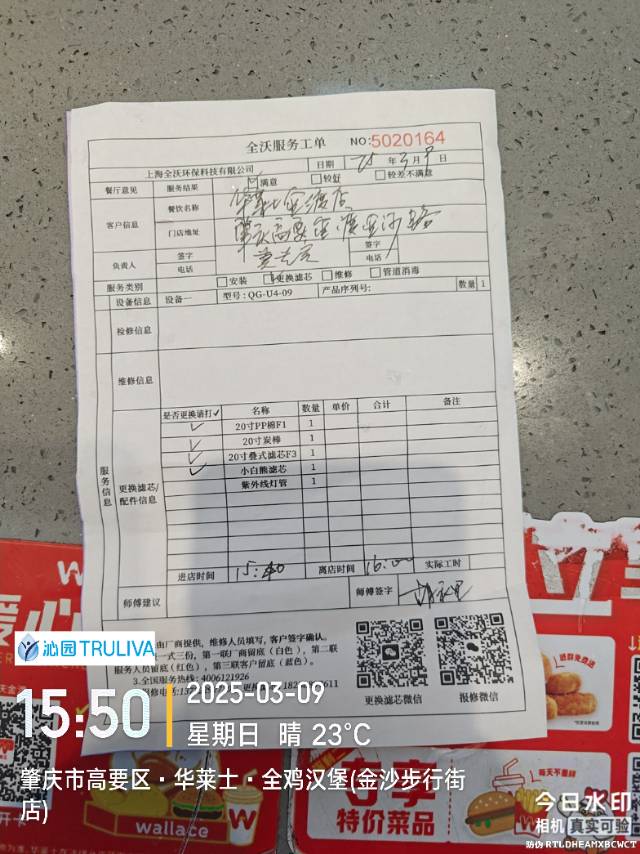 全沃服务工单 NO:5020164
上海全沃环保科技有限公司 日期 25 年 3 月 9 日
餐厅意见 服务结果 满意 较好 较差不满意
客户信息 餐饮名称 华莱士金渡店
门店地址 肇庆高要金渡金沙路
负责人 签字 签字
电话 电话
服务类别 安装 更换滤芯 维修 管道消毒
设备信息 设备一 型号: QG-U4-09 产品序列号: 数量 1
检修信息
维修信息
服务信息
更换滤芯/配件信息
是否更换请打✓ 名称 数量 单价 合计 备注
✓ 20寸PP棉F1 1
✓ 20寸炭棒 1
✓ 20寸叠式滤芯F3 1
✓ 小白熊滤芯 1
紫外线灯管 1
进店时间 15:40 离店时间 16:00 实际工时
师傅建议 师傅签字
由厂商提供, 维修人员填写, 客户签字确认。
一式三份, 第一联厂商留底 (白色)、第二联
服务人员留底(红色), 第三联客户留底 (蓝色)。
3.全国服务热线: 4006121926
更换滤芯微信 报修微信
沁园TRULIVA
15:50
2025-03-09
星期日 晴 23°C
肇庆市高要区·华莱士·全鸡汉堡(金沙步行街店)
wallace
特价菜品
今日水印
相机 真实可验
防伪 RTLDHEAMXBCWCT